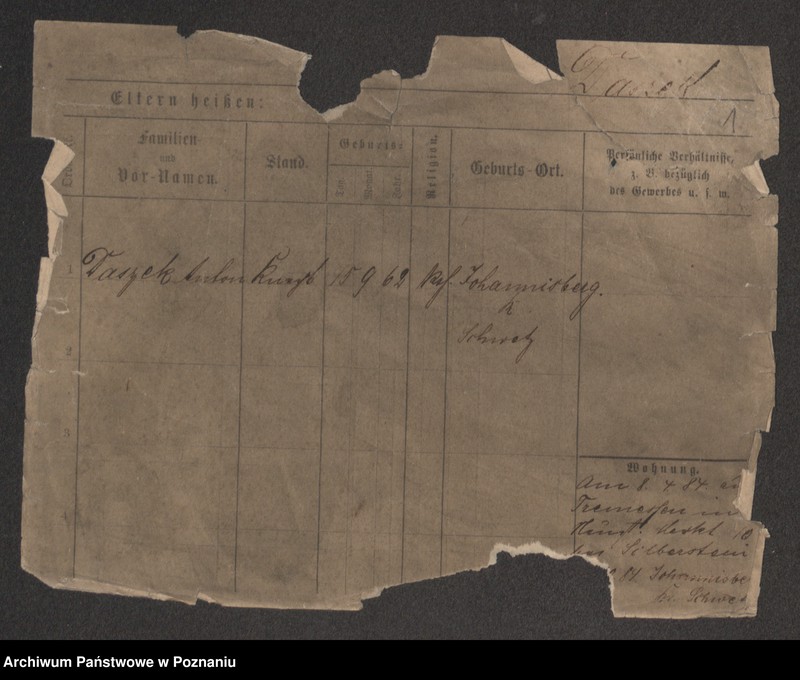 Daszek
1
Eltern heißen:
Familien-
und
Vor-Namen.
Stand.
Geburts-
Tag.
Monat.
Jahr.
Religion.
Geburts-Ort.
Persönliche Verhältnisse,
z. B. bezüglich
des Gewerbes u. s. w.
1 Daszek Anton Knecht 15 9 62 kth. Johannisberg.
Schwetz
2
3
Wohnung.
Am 8. 4 84
Tremessen
Markt 10
bei Silberstein
84 Johannisbe
Schwe
Archiwum Państwowe w Poznaniu